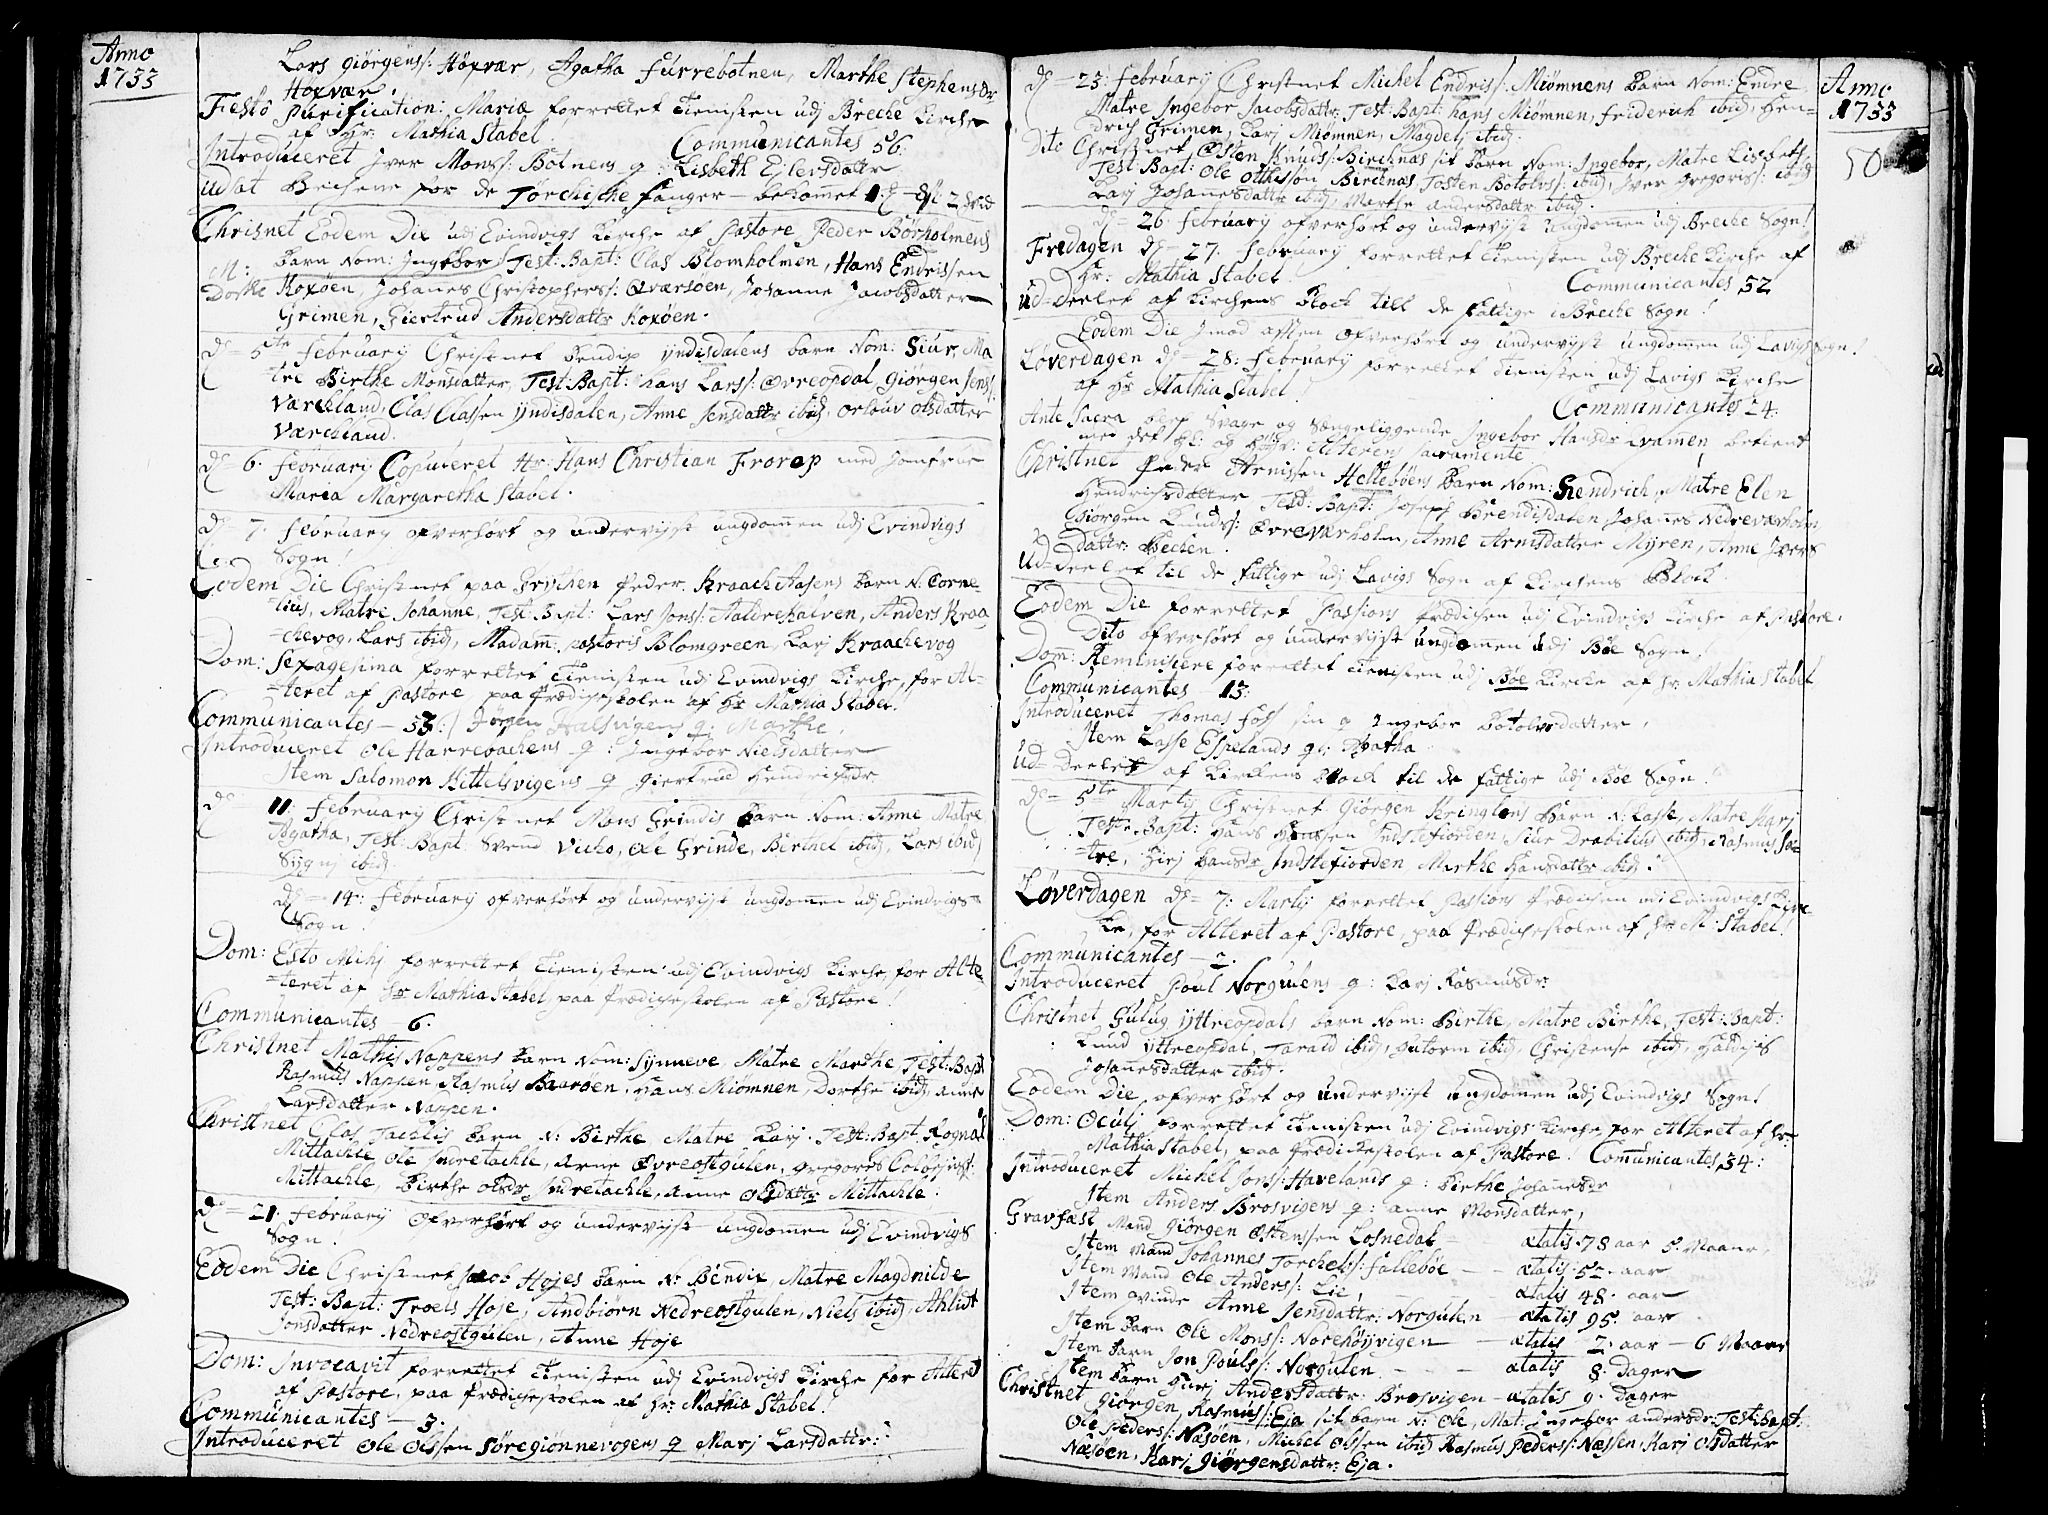 Anno
1733
Lars Giörgens/: Höyvær, Agatha Furrebotnen, Marthe Stephensdr
Höyvær.
Festo Purification: Mariæ forrettet Tienisten udj Breche Kirche
af Hr: Mathia Stabel Communicantes 56.
Introduceret Iver Mons/: Botnens q: Lisbeth Ejlersdattr
udsat Bechene for de Törchische Fanger — bekommet
Christnet Eodem Die udj Evindvigs Kirche af Pastore Peder Borholmens
Barn Nom: Ingebor, Test: Bapt: Clas Blomholmen, Hans Endrissen
M:
Dorthe Koxöen, Johanes Christophers/: Qværsöen, Johanne Jacobsdatter
Grimen, Giertrud Andersdattr Koxöen.
d= 5te February Christnet Bendix Yndisdalens barn Nom: Siur, Ma
tre Birthe Monsdatter, Test: Bapt: hans Lars/: Øvreopdal, Giörgen Jens/:
Værchland, Clas Classen Yndisdalen, Anne Jensdattr ibid, Orlouv Olsdatter
Værchland.
d= 6. February Copuleret Hr: Hans Christian Frorop med Jomfrue
Maria Margaretha Stabel.
d= 7. February ofverhört og undervijst ungdommen udj Evindvigs
Sogn!
Eodem Die Christnet paa Frychen Peder Kraach Aasens Barn N: Corne-
lius, Matre Johanne, Test: Bapt: Lars Jons/: Haldrehalven, Anders Kraa
chevog, Lars ibid, Madam: pastoris Blomgreen, Karj Kraachevog
Dom: Sexagesima forrettet Tienisten udj Evindvigs Kirche, for Al-
teret af Pastore paa Prædicheskolen af Hr Mathia Stabel.
Communicantes — 53:/ Jörgen Halsvigens q: Marthe.
Introduceret Ole Harrebachens q: Ingebor Nielsdatter
Item Salomon Hettelsvigens q Giertrud Hendrichsdr
d= 11. February Christnet Mons Grindis Barn Nom: Anne Matre
Agatha, Test: Bapt: Svend Vicho, Ole Grinde, Berthel ibid, Lars ibid
Sygnj ibid
d= 14. February ofverhört og undervijst ungdommen udj Evindvigs=
Sogn.
Dom: Esto Mihj forrettet Tienisten udj Evindvigs Kirche, for Alte-
teret af Hr Mathia Stabel, paa Prædicheskolen af Pastore.
Communicantes — 6.
Christnet Mathis Nappens Barn Nom: Synneve, Matre Marthe, Test: Bapt
Rasmus Nappen, Rasmus Baaröen, Hans Miömnen, Dorthe ibid, Anne
Larsdatter Nappen.
Christnet Clas Tachlis Barn N: Birthe Matre Karj. Test: Bapt: Rognal
Mittachle Ole Indretachle, Arne Øvreostgulen, Gregores
Mittachle, Birthe Olsdr Indretachle, Anne Olsdattr Mittachle.
d= 21. February Ofverhört og undervijst ungdommen udj Evindvigs
Sogn.
Eodem Die Christnet Jacob Höjes Barn N: Bendix, Matre Magdnilde
Test: Bapt: Troels Höje, Andbiörn Nedreostgulen, Niels ibid, Ahlist
Jonsdatter Nedreostgulen, Anne Höje
Dom: Invocavit forrettet Tienisten udj Evindvigs Kirche for Alteret
af Pastore, paa Prædicheskolen af Hr: Mathia Stabel!
Communicantes — 3.
Introduceret Ole Olssen Söregionnevogens q Marj Larsdattr:
Anno
1733
50
d= 23. February Christnet Michel Endris/: Miömnens Barn Nom: Endre
Matre Ingebor Jacobsdattr, Test: Bapt: hans Miömnen, Friderich ibid, Hen-
drich Grimen, Karj Miömnen, Magdelj ibid:
Dito Christnet Østen Knuds/: Birchnas sit Barn Nom: Ingebor, Matre Lisbeth,
Test: Bapt: Ole Otthisson Birchnas, Tosten Botolvs/: ibid, Iver Gregoris/: ibid
Karj Johanesdattr ibid, Marthe Andersdattr ibid.
d= 26. February ofverhört og undervijst ungdommen udj Breche Sogn!
Fredagen d= 27. February forrettet Tienisten udj Breche Kirche af
Hr: Mathia Stabel! Communicantes 52
ud=deelet af Kirchens Block till de fattige i Breche Sogn!
Eodem Die imod aften ofverhört og undervijst ungdommen udj Lavigs Sogn!
Löverdagen d= 28: February forrettet Tienisten udj Lavigs Kirche
af Hr Mathia Stabel! Communicantes 24.
Ante Sacra blef Svage og Sængeliggende Ingebor Hansdr betient
med det Hl: og Höjv: Alterens Sacramente
Christnet Peder Arnissen Hellebøens Barn Nom: Hendrich, Matre Elen
Hendrichsdatter Test: Bapt: Joseph Brendisdalen Johanes Nedreværholm
Giörgen Knuds/: Øvreværholm, Anne Arnisdatter Myren, Anne Ivers
Dattr: Bechen.
Ud=deelet til de fattige udj Lavigs Sogn af Kirchens Block.
Eodem Die forrettet Passions Prædichen udj Evindvigs Kirche af Pastore.
Dito ofverhört og undervijst ungdommen udj Böe Sogn!
Dom: Reminiscere forrettet Tienisten udj Böe Kirche af Hr Mathia Stabel
Communicantes — 13.
Introduceret Thomas Foss sin q Ingebor Botolvsdatter,
Item Lasse Espelands q: Agatha
ud=Deelet af Kirckens Block til de fattige udj Böe Sogn!
d= 5te Martij Christnet Giörgen Kringlens Barn N: Lasse, Matre Karj
Test: Bapt: Hans Hanssen Indstefiorden, Siur Drabitius ibid, Rasmus Sæ-
tre, Hansdr Indstefiorden Marthe Hansdattr ibid.
Löverdagen d= 7. Martij forrettet Passions Prædichen udj Evindvigs Kir-
ke, for Alteret af Pastore, paa Prædicheskolen af Hr M: Stabel!
Communicantes — 2.
Introduceret Poul Norgulens q: Karj Rasmusdr
Christnet Gulug Yttreopdals barn Nom: Birthe, Matre Birthe, Test: Bapt:
Knud Yttreopdal, Tarald ibid, Gutorm ibid, Christense ibid,
Johanesdatter ibid.
Eodem Die ofverhört og undervijst ungdommen udj Evindvigs Sogn!
Dom: Oculj forrettet Tienisten udj Evindvigs Kirche for Alteret af Hr
Mathia Stabel, paa Prædicheskolen af Pastore. Communicantes 34:
Introduceret Michel Jons/: Havelands q: Birthe Johanesdr
Item Anders Brosvigens q: Anne Monsdatter,
Gravfæst Mand Giörgen Østenssen Losnedal — Ætatis 78 aar 5. Maaner,
Item Mand Johannes Torchels/: Fallebøe — Ætatis 52. aar
Item Mand Ole Anders/: Lie, — Ætatis 48. aar
Item Qvinde Anne Jensdattr: Norgulen — Ætatis 95. aar
Item Barn Ole Mons/: Norehöyvigen — Ætatis 2. aar — 6 Maaner
Item Barn Jon Pouls/: Norgulen — Ætatis 8. Dager
Item Barn Gurj Andersdattr: Brosvigen — Ætatis 9. Dager
Christnet Giörgen Rasmus/: Eja sit barn N: Ole, Mat: Ingebor Andersdr: Test: Bapt:
Ole Peders/: Næsöen, Michel Olssen ibid Rasmus Peders/: Næssen, Karj Olsdatter
Næsöen, Karj Giörgensdattr: Eja.